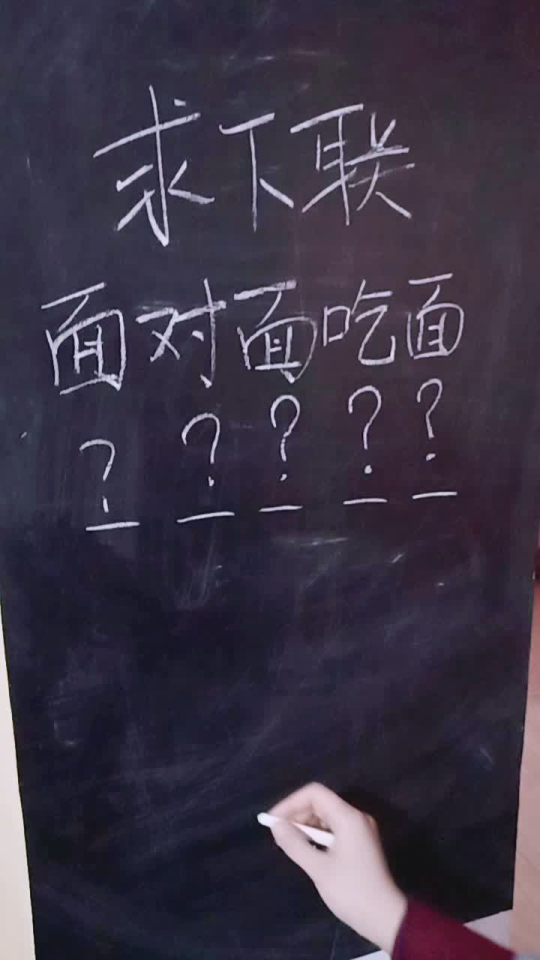 求下联
面对面吃面
? ? ? ? ?